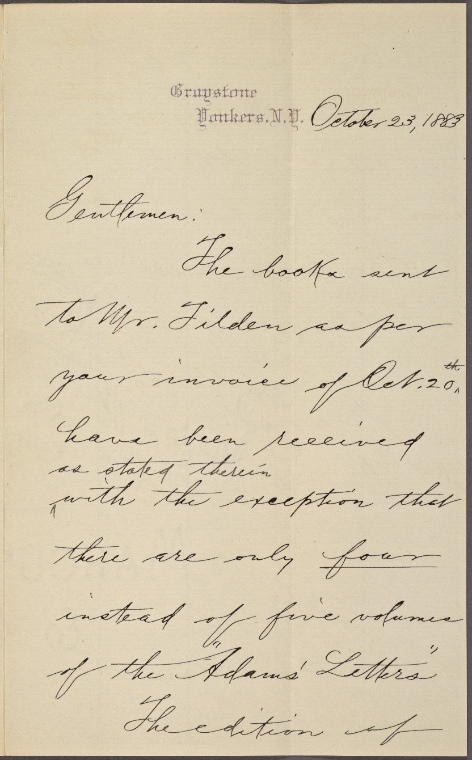 Graystone
Yonkers, N.Y. October 23, 1883
Gentlemen:
The books sent
to Mr. Tilden as per
your invoice of Oct. 20th
have been received
as stated therein
^with the exception that
there are only four
instead of five volumes
of the "Adams' Letters"
The edition of